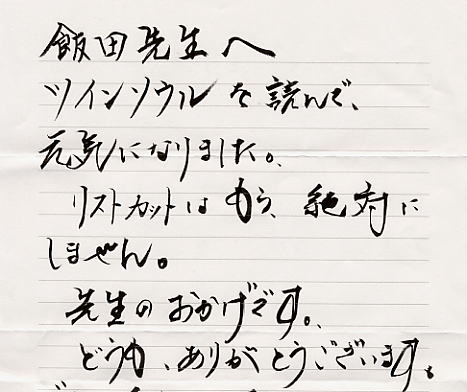 飯田先生へ
ツインソウルを読んで、
元気になりました。
リストカットはもう、絶対に
しません。
先生のおかげです。
どうも、ありがとうございます。